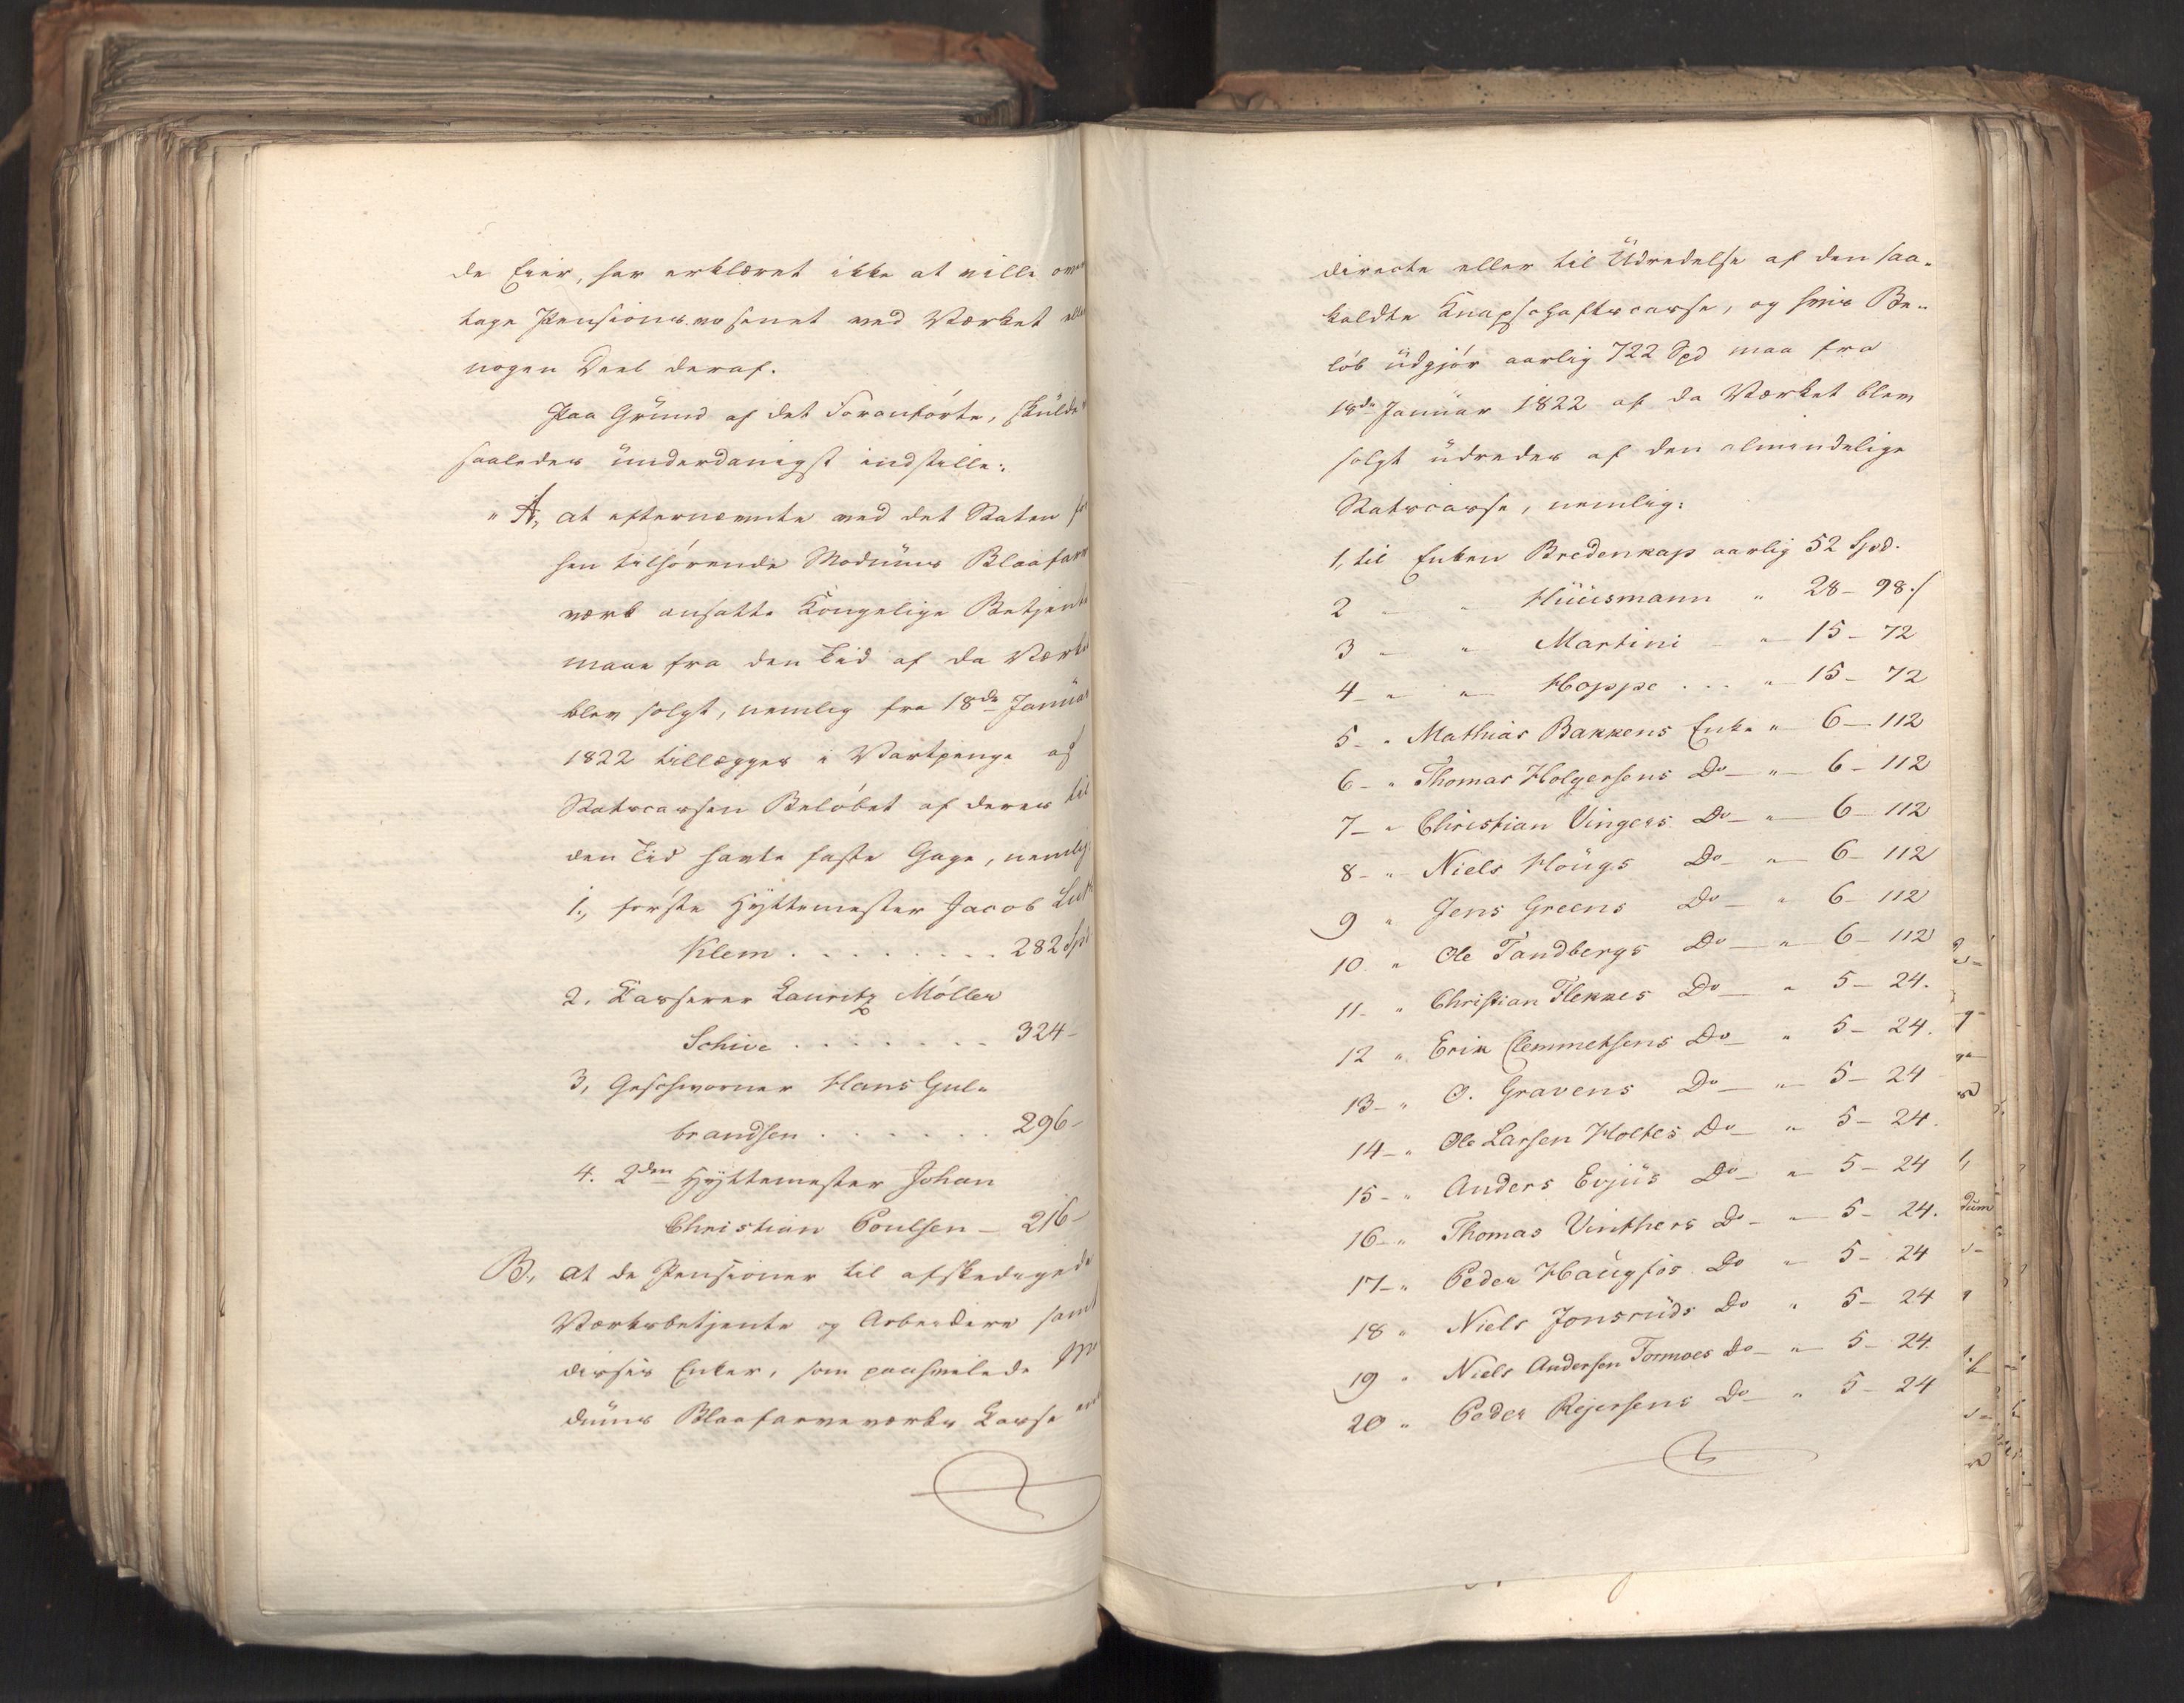 de Eier, har erklæret ikke at ville over
tage Pensionsvæsenet ved Værket eller
nogen Deel deraf.
Paa Grund af det Foranførte, skulde
saaledes underdanigst indstille:
" A, at efternævnte ved det Staten for
hen tilhørende Modums Blaafarve
værk ansatte Kongelige Betjente
maae fra den Tid af da Værket
blev solgt, nemlig fra 18de Januar
1822 tillægges i Vartpenge af
Statscassen Beløbet af deres til
den Tid havte faste Gage, nemlig:
1., første Hyttemester Jacob
Klem . . . . . . . . 282 Spd
2. Kasserer Lauritz Møller
Schive . . . . . . . 324 -
3, Geschworner Hans Gul-
brandsen . . . . . . 296 -
4. 2den Hyttemester Johan
Christian Poulsen - 216 -
B., at de Pensioner til afskedigede
Værksbetjente og Arbeidere samt
disses Enker, som paahvilede Mo
dums Blaafarveværks Kasse
directe eller til Udredelse af den saa-
kaldte Knapschaftscasse, og hvis Be-
løb udgjør aarlig 722 Spd maa fra
18de Januar 1822 af da Værket blev
solgt udredes af den almindelige
Statscasse, nemlig:
1, til Enken Bredenkap aarlig 52 Spd.
2 - " Huusmann " 28 - 98 s
3 - " Martini - " 15 - 72
4 - " Hoppe . . . " 15 - 72
5 - " Mathias Bakkens Enke " 6 - 112
6 - " Thomas Holgersens Do - " 6 - 112
7 - " Christian Vingers Do - " 6 - 112
8 - " Niels Hougs Do - " 6 - 112
9 " Jens Greens Do - " 6 - 112
10 " Ole Tandbergs Do - " 6 - 112
11 - " Christian Flekkes Do - " 5 - 24.
12 " Erik Clemmetsens Do - " 5 - 24.
13 - " O. Gravens Do - " 5 - 24
14 - " Ole Larsen Holtes Do - " 5 - 24.
15 - " Anders Evjus Do - " 5 - 24
16 - " Thomas Vinthers Do - " 5 - 24.
17 - " Peder Haugfos Do " 5 - 24
18 " Niels Jonsruds Do " 5 - 24
19 " Niels Andersen Tormoes Do - " 5 - 24.
20 " Peder Rejersens Do - " 5 - 24